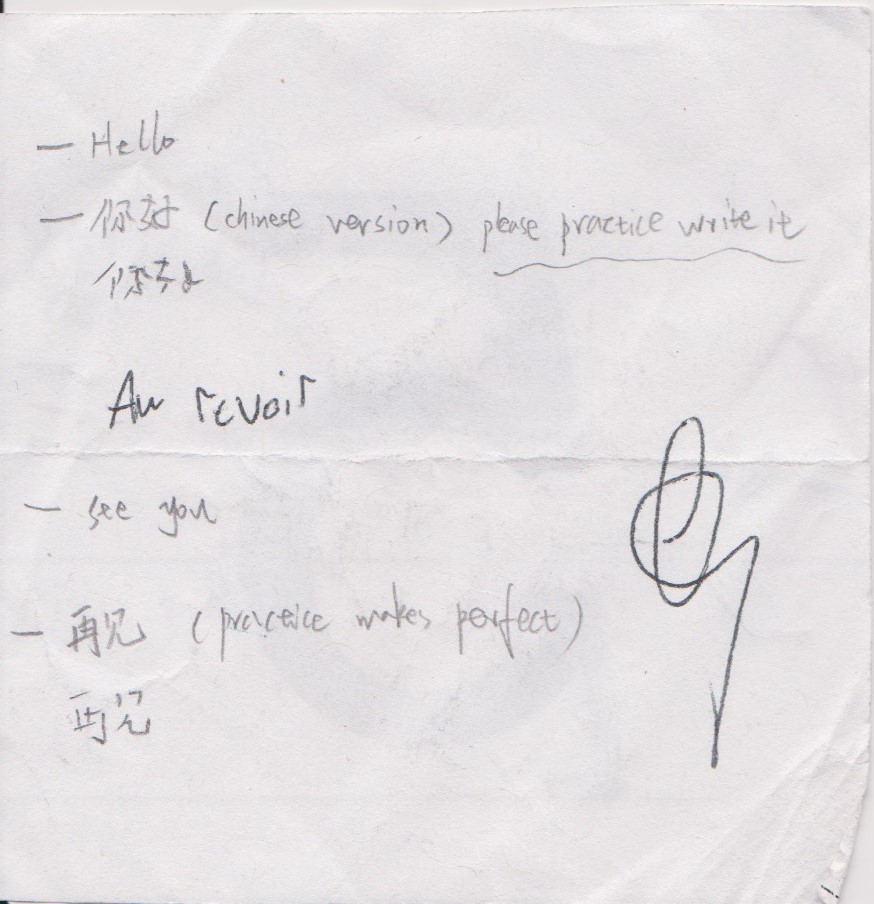 — Hello
— 你好 (chinese version) please practice write it
你好
Au revoir
— see you
— 再见 (practice makes perfect)
再见